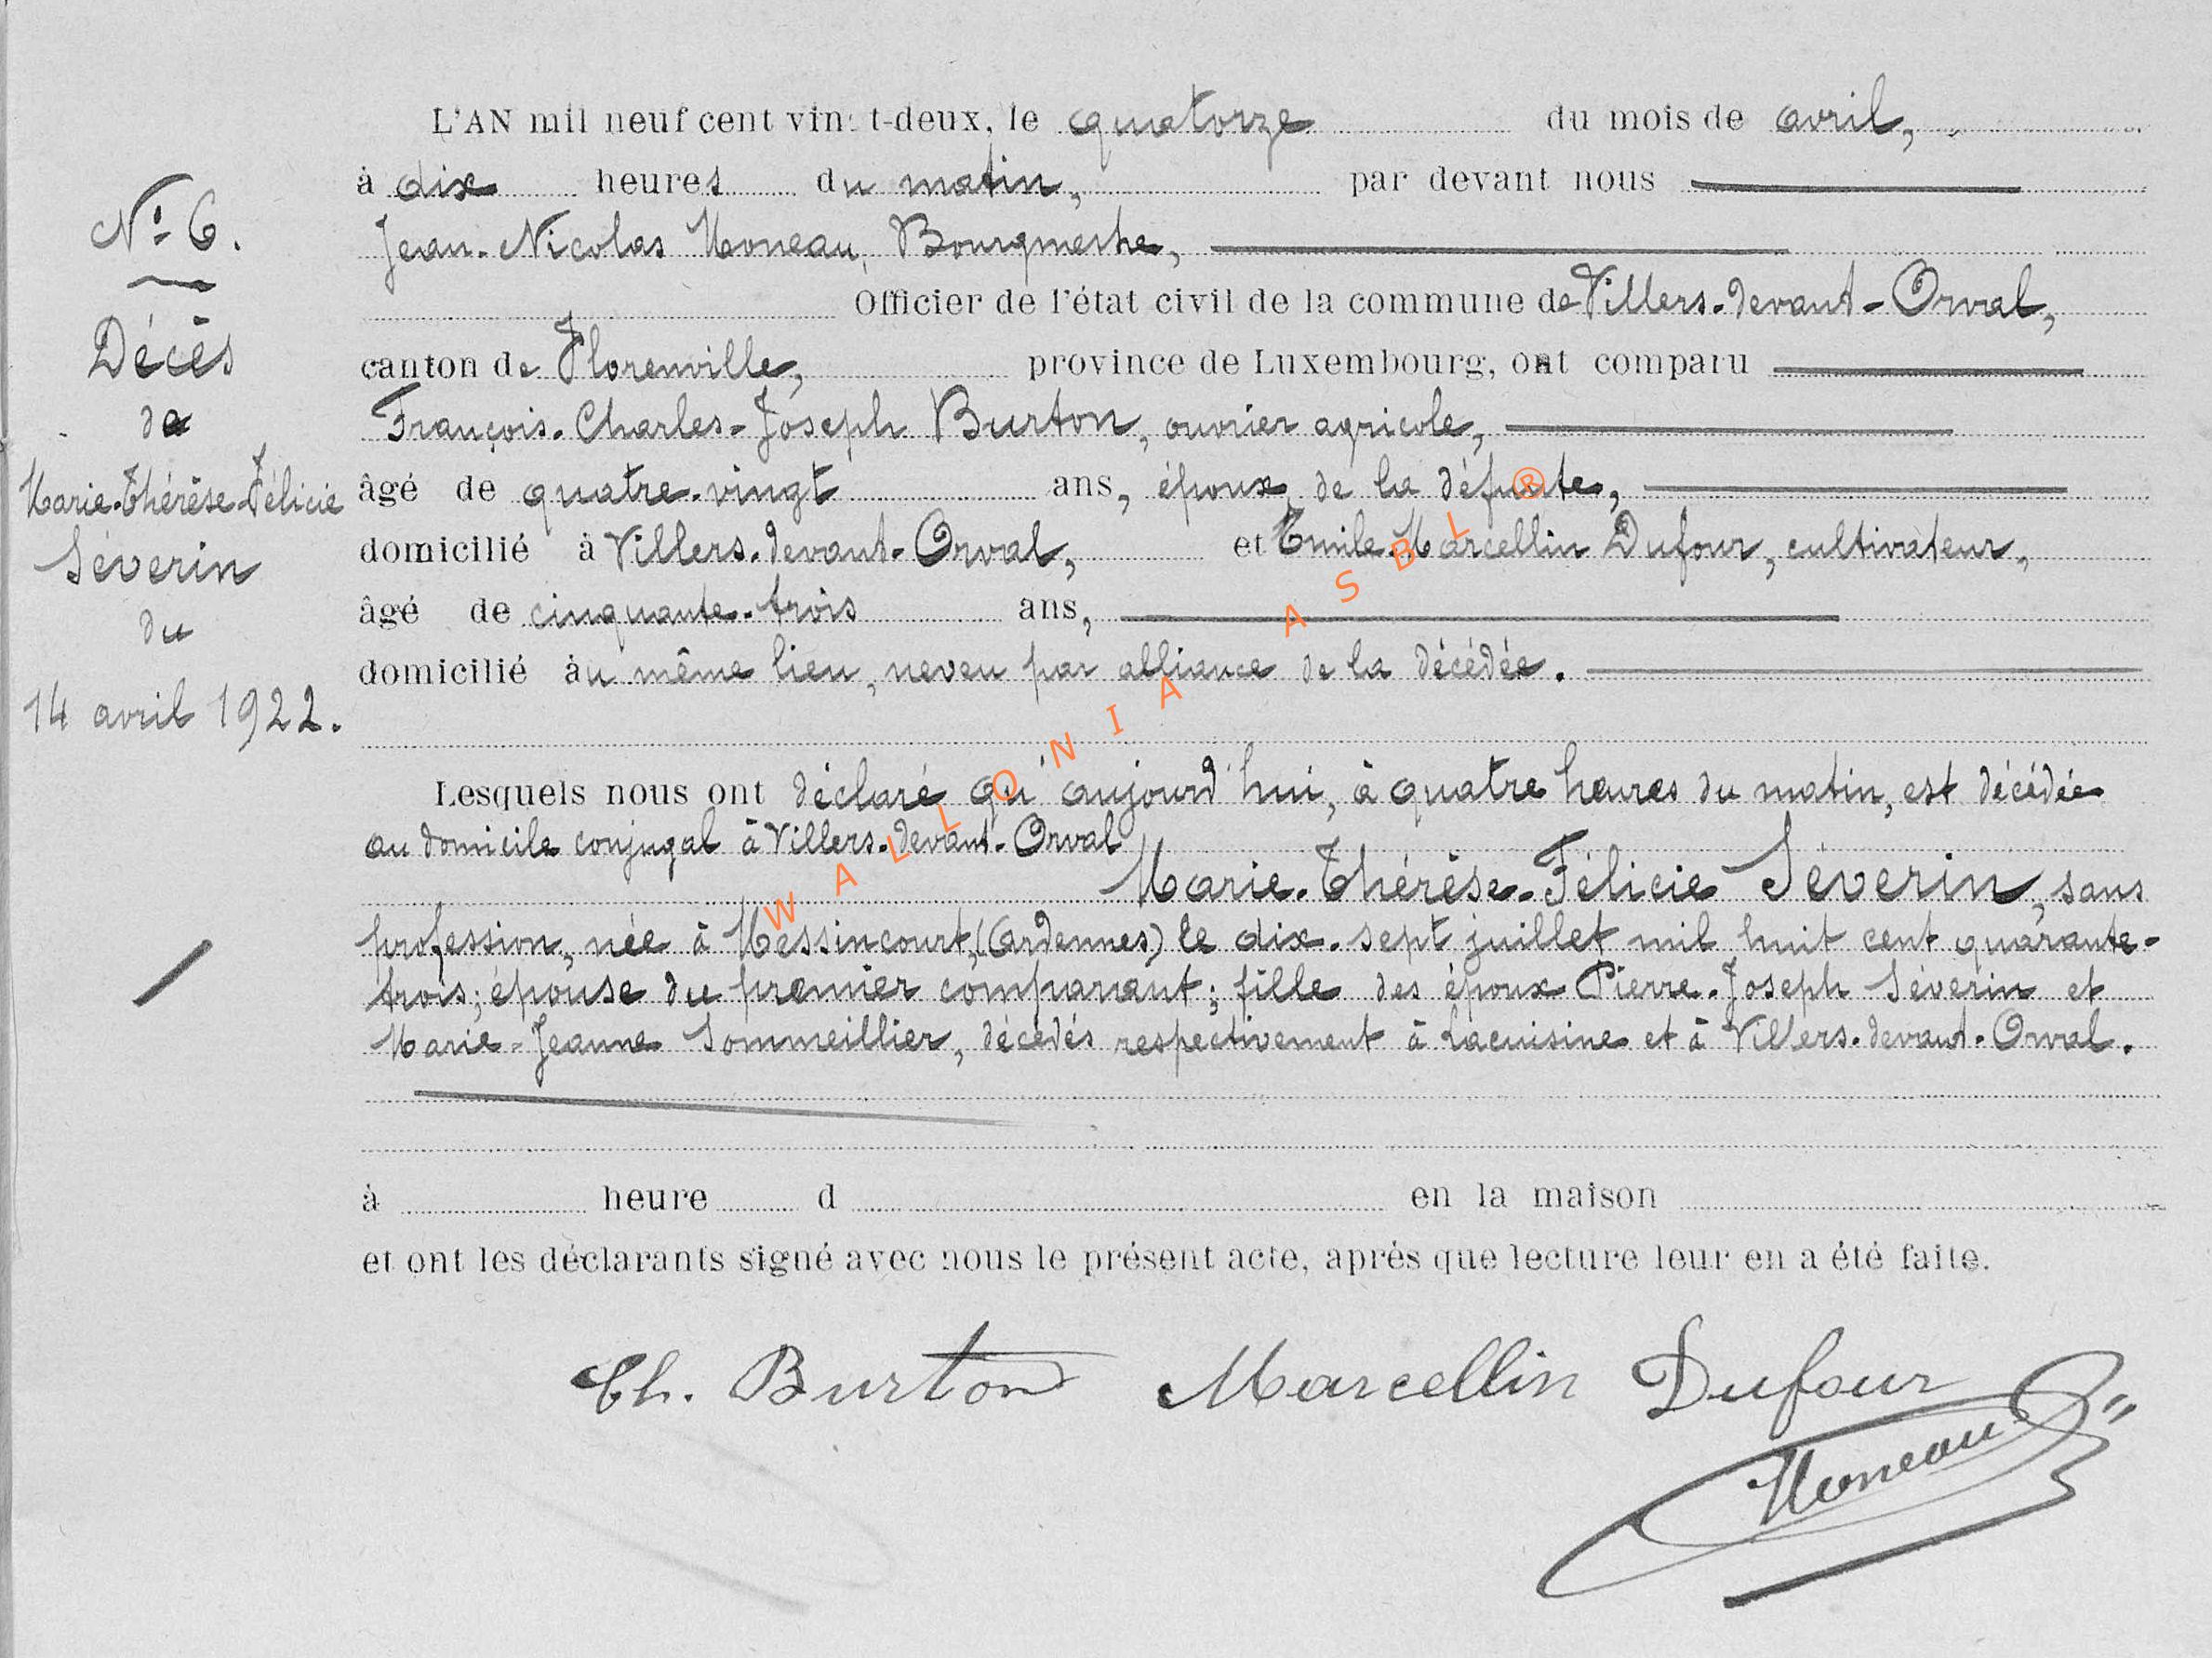 N° 6.
Décès
de
Marie-Thérèse-Félicie
Séverin
du
14 avril 1922.
L'AN mil neuf cent vingt-deux, le quatorze du mois de avril,
à dix heures du matin, par devant nous
Jean-Nicolas Moneau, Bourgmestre,
Officier de l'état civil de la commune de Villers-devant-Orval,
canton de Florenville, province de Luxembourg, ont comparu
François-Charles-Joseph Burton, ouvrier agricole,
âgé de quatre-vingt ans, époux de la défunte,
domicilié à Villers-devant-Orval, et Emile-Marcellin Dufour, cultivateur,
âgé de cinquante-trois ans,
domicilié au même lieu, neveu par alliance de la décédée.
Lesquels nous ont déclaré qu'aujourd'hui, à quatre heures du matin, est décédée
au domicile conjugal à Villers-devant-Orval
Marie-Thérèse-Félicie Séverin, sans
profession, née à Messincourt, (Ardennes) le dix-sept juillet mil huit cent quarante-
trois; épouse du premier comparant; fille des époux Pierre-Joseph Séverin et
Marie-Jeanne Sommeillier, décédés respectivement à Lacuisine et à Villers-devant-Orval.
à heure d en la maison
et ont les déclarants signé avec nous le présent acte, après que lecture leur en a été faite.
Ch. Burton Marcellin Dufour
Moneau
WALLONIA ASBL ®